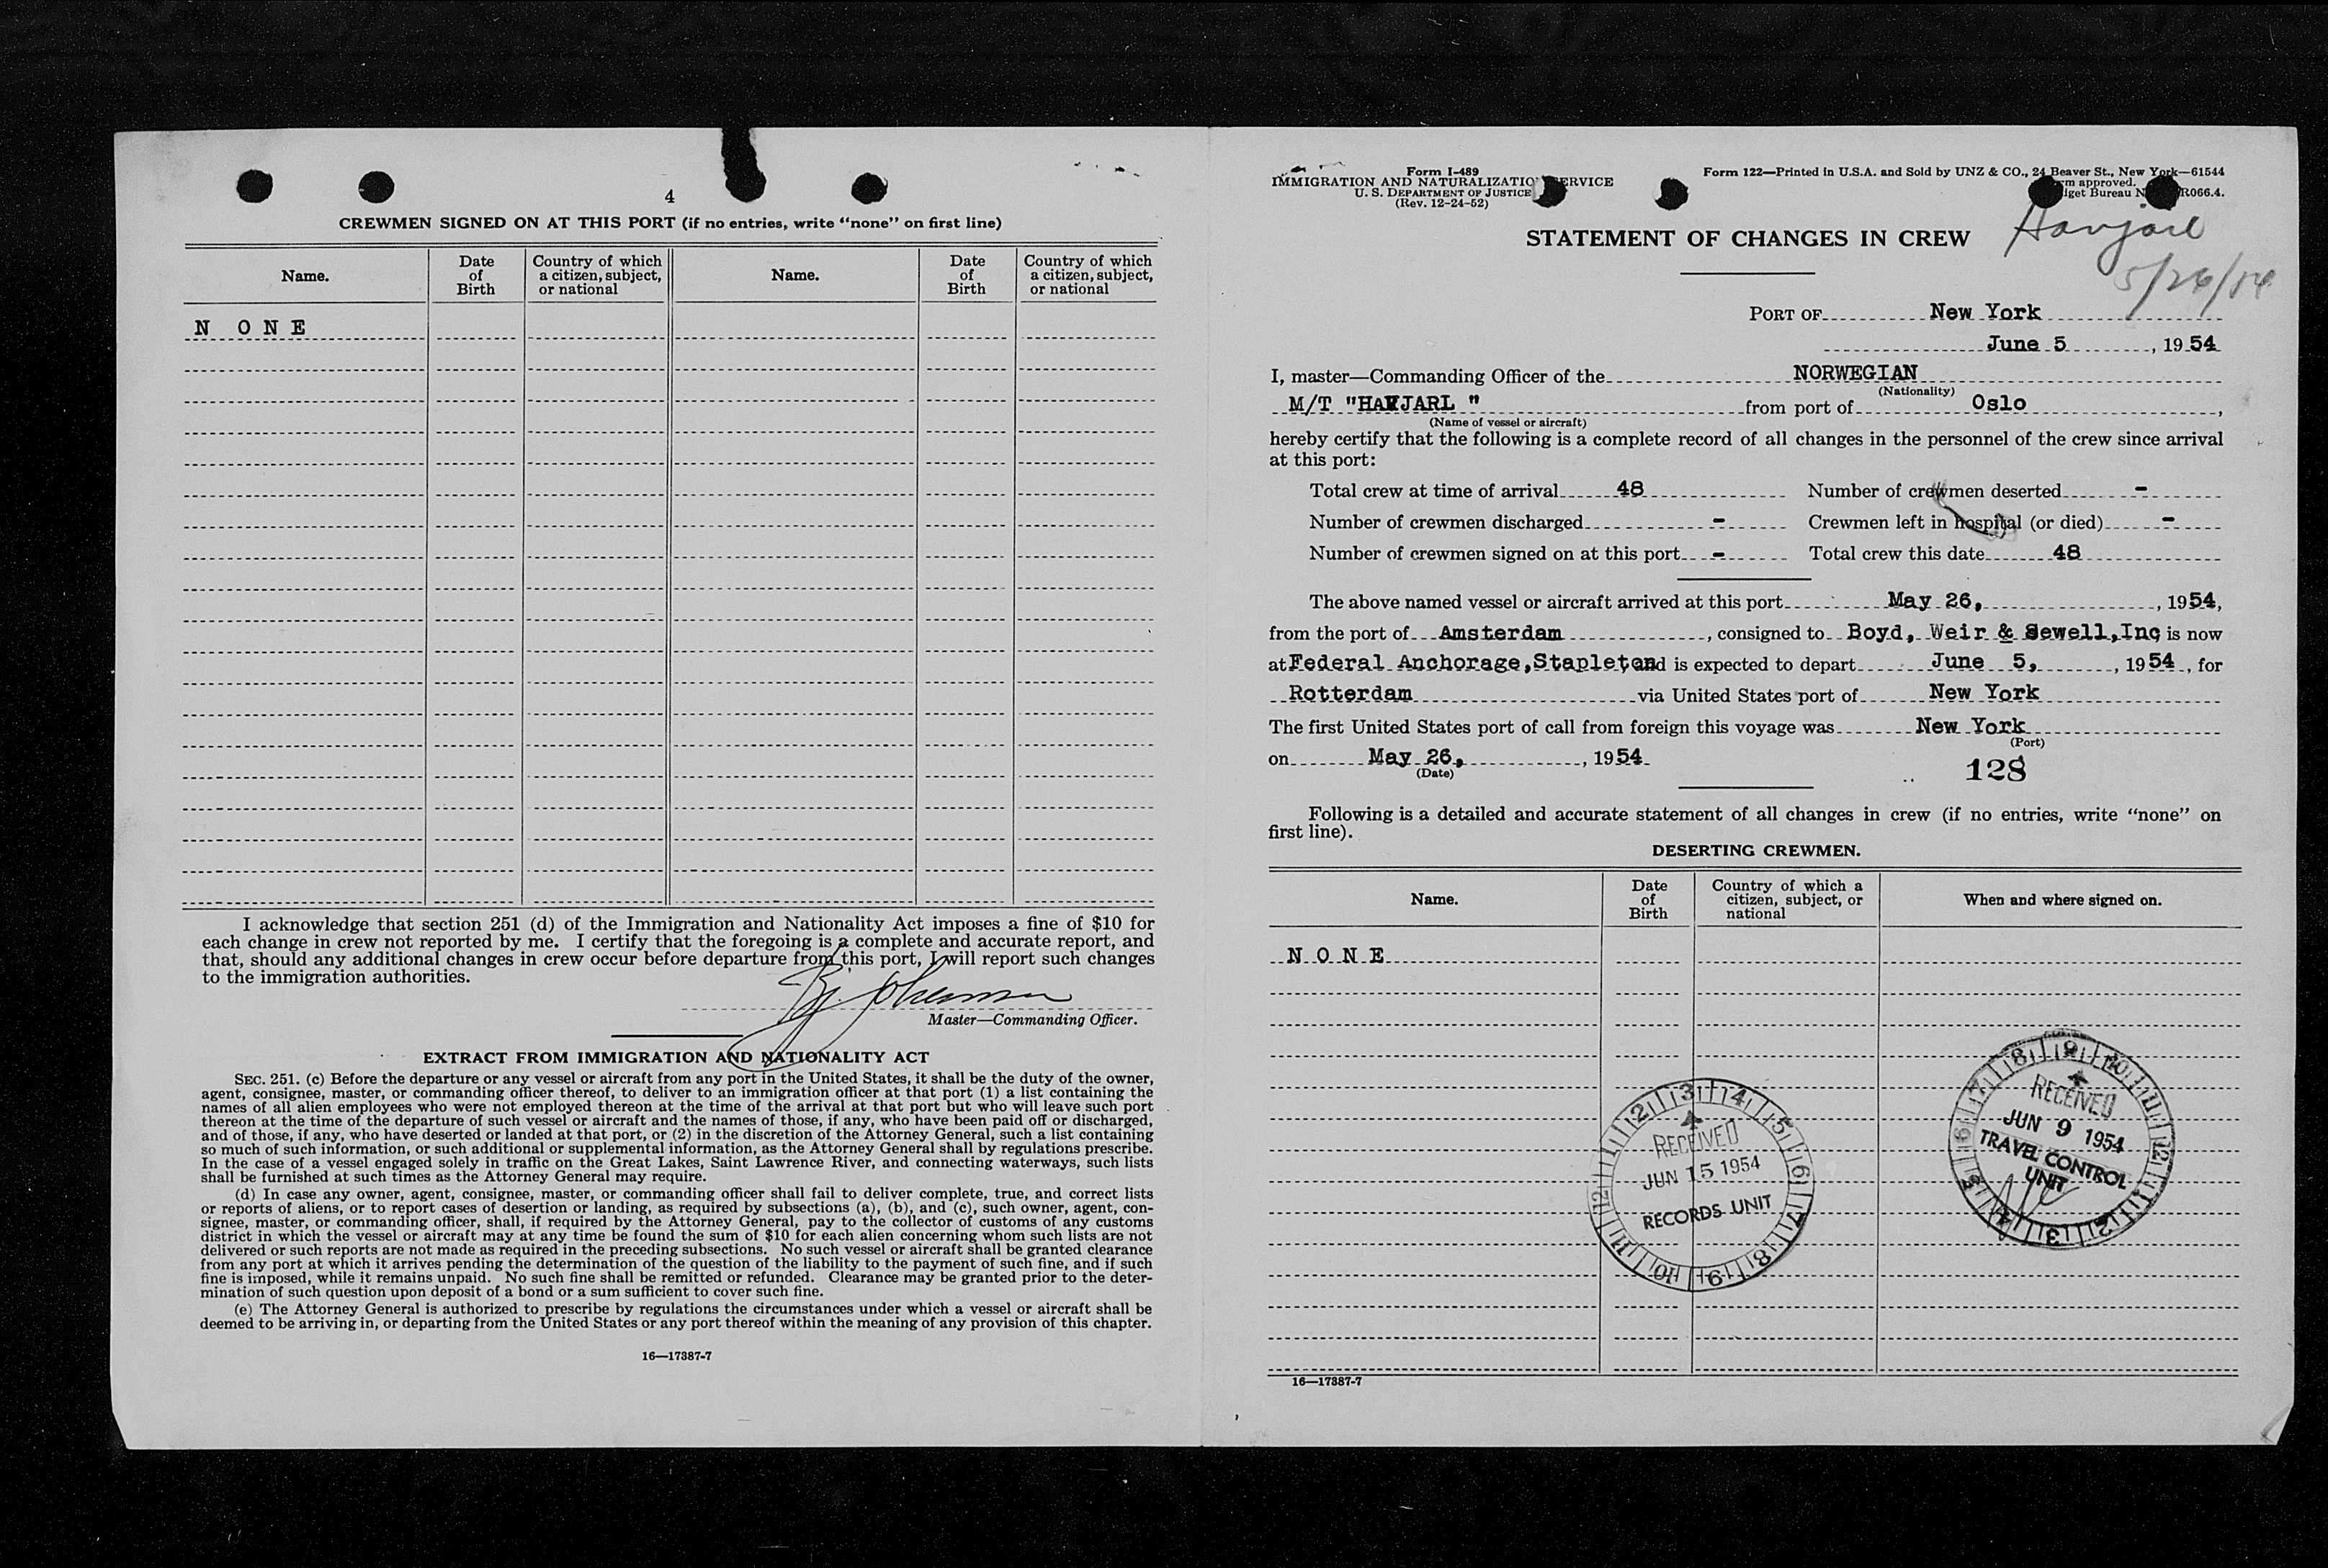 4
CREWMEN SIGNED ON AT THIS PORT (if no entries, write "none" on first line)
Name. Date of Birth Country of which a citizen, subject, or national Name. Date of Birth Country of which a citizen, subject, or national
N ONE
I acknowledge that section 251 (d) of the Immigration and Nationality Act imposes a fine of $10 for
each change in crew not reported by me. I certify that the foregoing is a complete and accurate report, and
that, should any additional changes in crew occur before departure from this port, I will report such changes
to the immigration authorities.
Master—Commanding Officer.
EXTRACT FROM IMMIGRATION AND NATIONALITY ACT
SEC. 251. (c) Before the departure or any vessel or aircraft from any port in the United States, it shall be the duty of the owner,
agent, consignee, master, or commanding officer thereof, to deliver to an immigration officer at that port (1) a list containing the
names of all alien employees who were not employed thereon at the time of the arrival at that port but who will leave such port
thereon at the time of the departure of such vessel or aircraft and the names of those, if any, who have been paid off or discharged,
and of those, if any, who have deserted or landed at that port, or (2) in the discretion of the Attorney General, such a list containing
so much of such information, or such additional or supplemental information, as the Attorney General shall by regulations prescribe.
In the case of a vessel engaged solely in traffic on the Great Lakes, Saint Lawrence River, and connecting waterways, such lists
shall be furnished at such times as the Attorney General may require.
(d) In case any owner, agent, consignee, master, or commanding officer shall fail to deliver complete, true, and correct lists
or reports of aliens, or to report cases of desertion or landing, as required by subsections (a), (b), and (c), such owner, agent, con-
signee, master, or commanding officer, shall, if required by the Attorney General, pay to the collector of customs of any customs
district in which the vessel or aircraft may at any time be found the sum of $10 for each alien concerning whom such lists are not
delivered or such reports are not made as required in the preceding subsections. No such vessel or aircraft shall be granted clearance
from any port at which it arrives pending the determination of the question of the liability to the payment of such fine, and if such
fine is imposed, while it remains unpaid. No such fine shall be remitted or refunded. Clearance may be granted prior to the deter-
mination of such question upon deposit of a bond or a sum sufficient to cover such fine.
(e) The Attorney General is authorized to prescribe by regulations the circumstances under which a vessel or aircraft shall be
deemed to be arriving in, or departing from the United States or any port thereof within the meaning of any provision of this chapter.
16—17387-7
Form I-489
IMMIGRATION AND NATURALIZATION SERVICE
U. S. DEPARTMENT OF JUSTICE
(Rev. 12-24-52)
Form 122—Printed in U.S.A. and Sold by UNZ & CO., 24 Beaver St., New York—61544
approved.
Bureau R066.4.
Havjarl
5/26/54
STATEMENT OF CHANGES IN CREW
PORT OF New York
June 5, 1954
I, master—Commanding Officer of the NORWEGIAN
(Nationality)
M/T "HAVJARL " from port of Oslo,
(Name of vessel or aircraft)
hereby certify that the following is a complete record of all changes in the personnel of the crew since arrival
at this port:
Total crew at time of arrival 48 Number of crewmen deserted -
Number of crewmen discharged - Crewmen left in hospital (or died) -
Number of crewmen signed on at this port - Total crew this date 48
The above named vessel or aircraft arrived at this port May 26, , 1954,
from the port of Amsterdam, consigned to Boyd, Weir & Sewell,Inc, is now
at Federal Anchorage,Stapleton and is expected to depart June 5, , 1954, for
Rotterdam via United States port of New York
The first United States port of call from foreign this voyage was New York
(Port)
on May 26, , 1954
(Date)
128
Following is a detailed and accurate statement of all changes in crew (if no entries, write "none" on
first line).
DESERTING CREWMEN.
Name. Date of Birth Country of which a citizen, subject, or national When and where signed on.
NONE
RECEIVED
JUN 15 1954
RECORDS UNIT
1 2 3 4 5 6 7 8 9 10 11 12
RECEIVED
JUN 9 1954
TRAVEL CONTROL
UNIT
7 8 9 10 11 12 1 2 3 4 5 6
16—17387-7